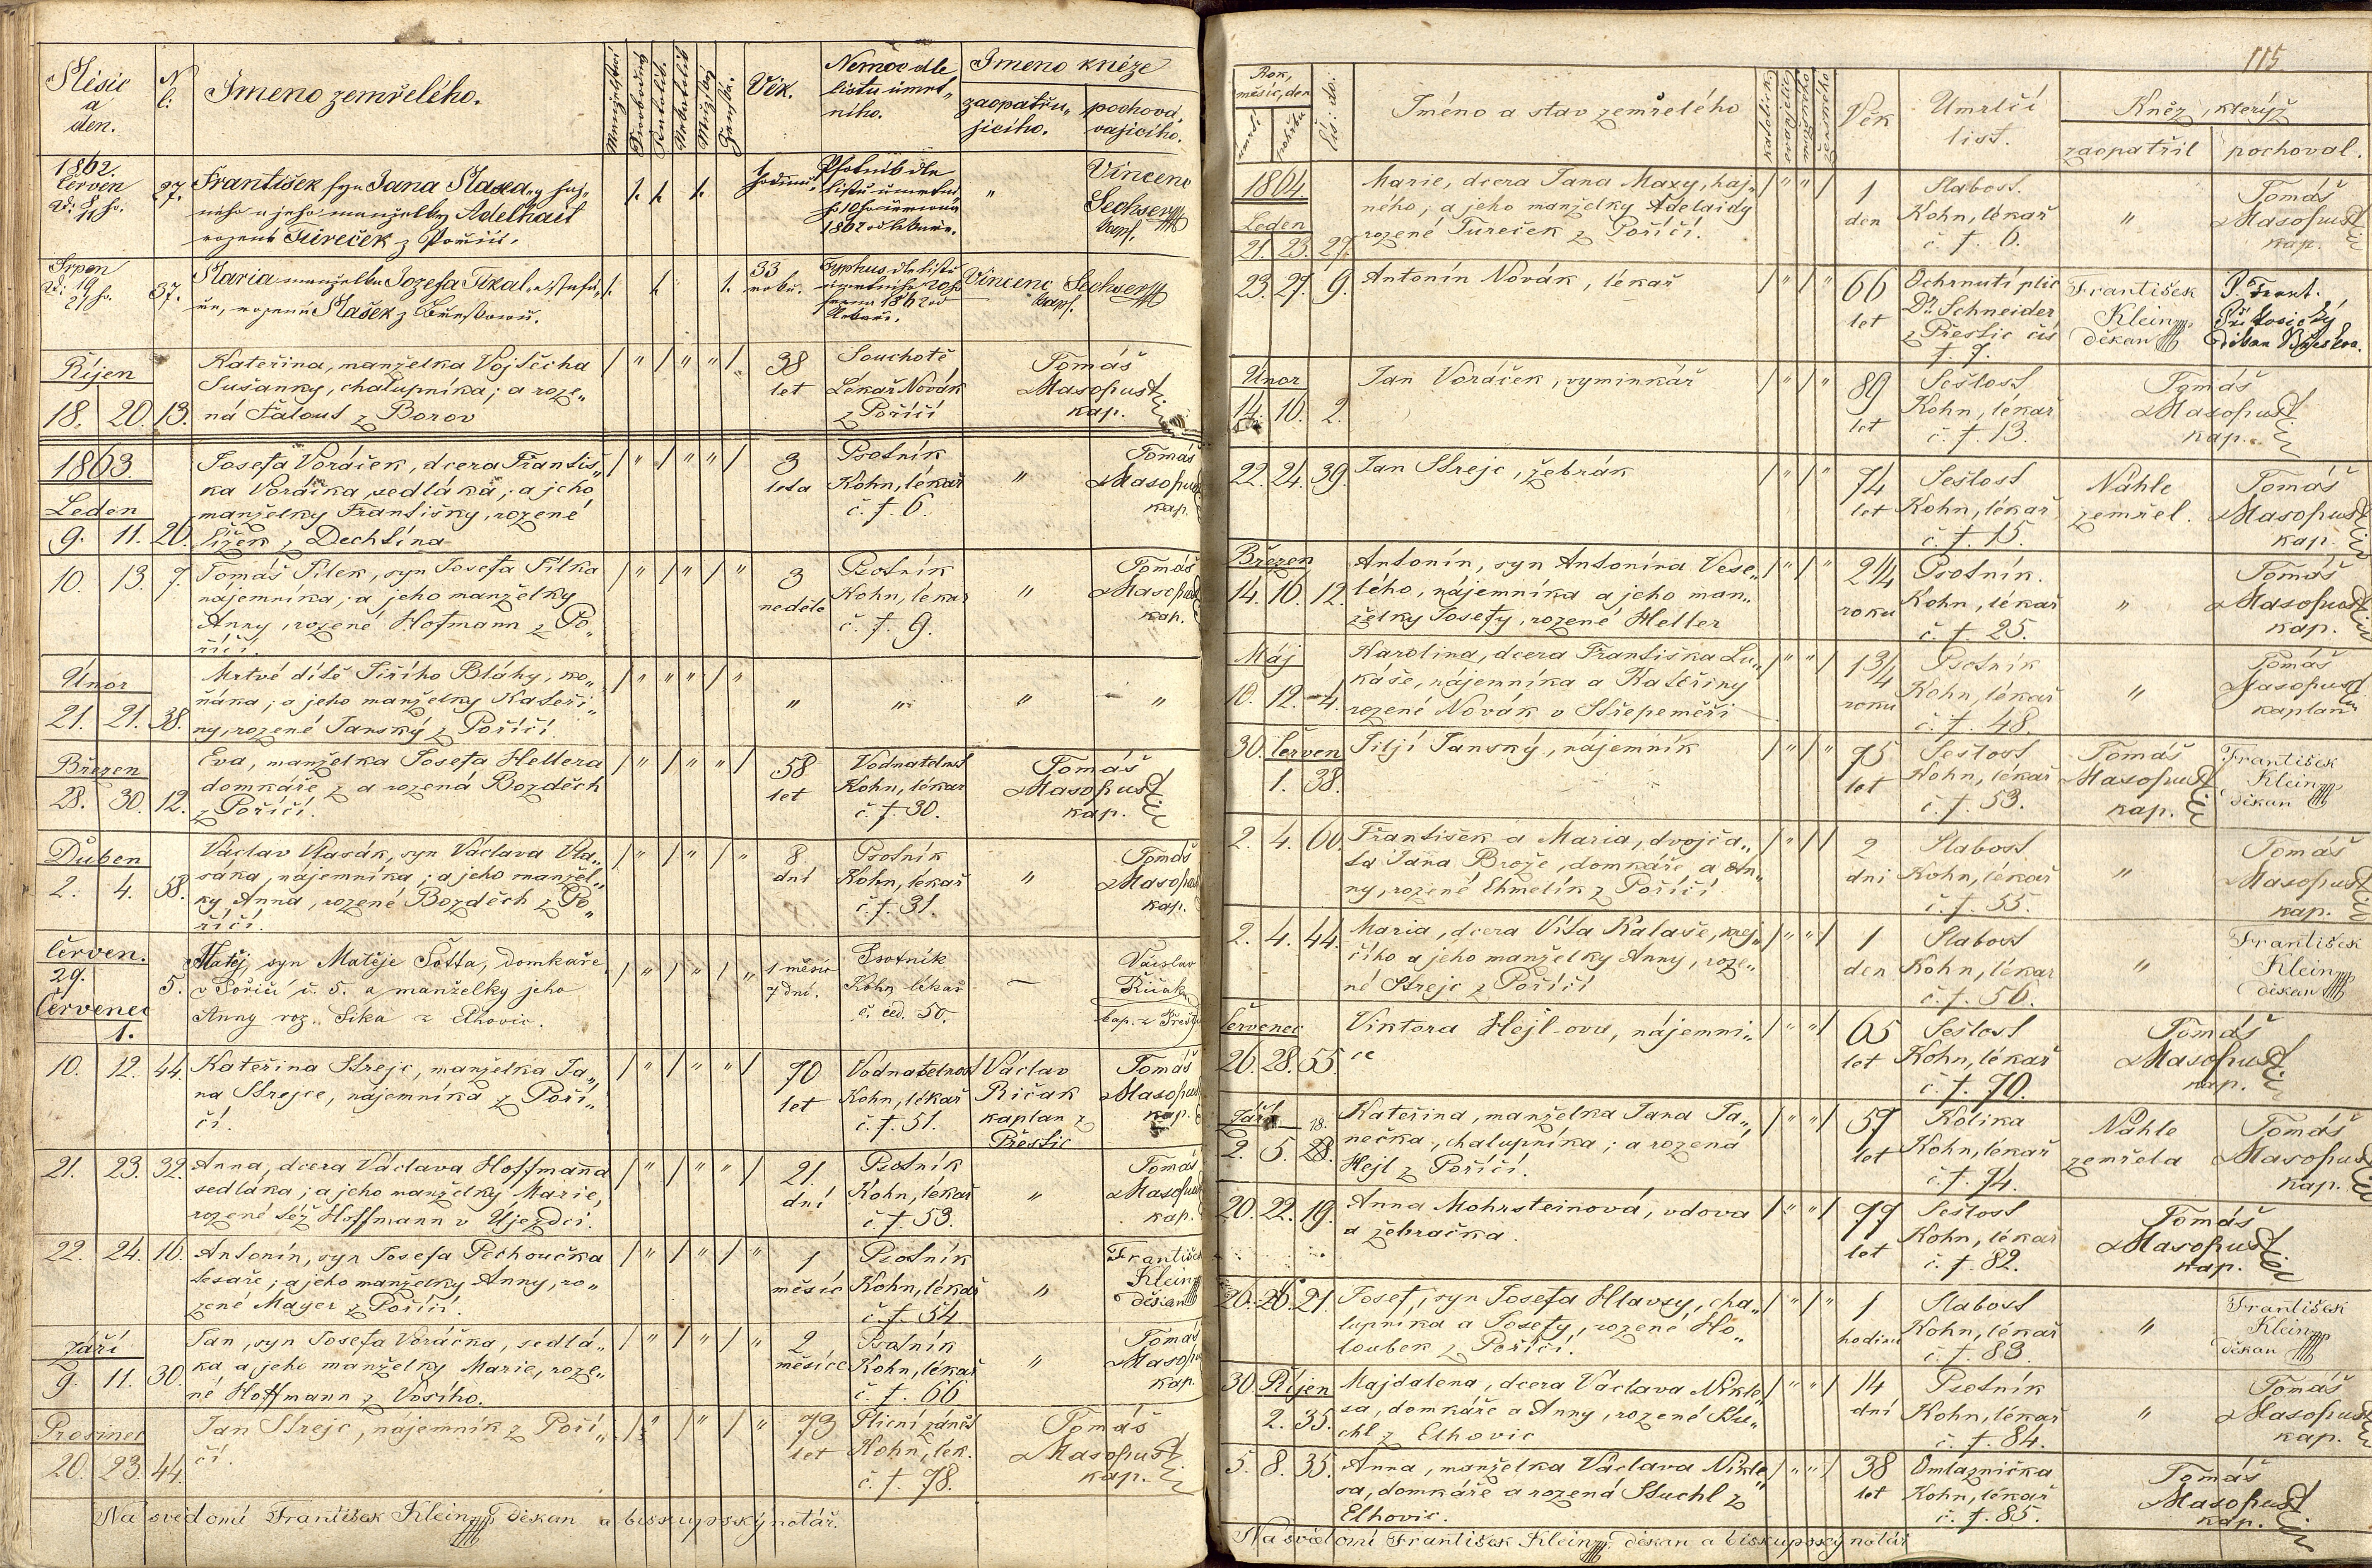 Měsíc
a
den.
N
č:
Jmeno zemřelého.
Věk.
Nemoc dle
listu úmrt„
ního.
Jmeno kněze
zaopatřu„
jícího.
pochová„
vajícího.
1862.
Červen
27.
František syn Jana
a jeho manželky Adelhait
rozené Tureček z Poříčí.
1862
Vincenc
Sechser
kap.
Srpen
19
21
37.
Maria manželka Jozefa
rozená Mašek z
33
roků.
Typhus dle listu
1862
Vincenc Sechser
kap.
Říjen
18. 20. 13.
Kateřina, manželka Vojtěcha
Sušanky, chalupníka; a roze„
ná Falout z Borov
38
let
Souchotě
Lékař Novák
z Poříčí
Tomáš
Masopust
kap.
1863.
Leden
9. 11. 20.
Josefa Voráček, dcera Františ„
ka Voráčka, sedláka; a jeho
manželky Františky, rozené
Cížek z Dechtína
3
leta
Psotník
Kohn, lékař
č. † 6.
"
Tomáš
Masopust
kap.
10. 13. 7.
Tomáš Pilek, syn Josefa Pilka
nájemníka; a jeho manželky
Anny, rozené Hofmann z Po„
říčí.
3
neděle
Psotník
Kohn, lékař
č. †. 9.
"
Tomáš
Masopust
kap.
Únor
21. 21. 38.
Mrtvé dítě Jiřího Bláhy, ko„
ňáka; a jeho manželky Kateři„
ny, rozené Janský z Poříčí.
" " " "
Březen
28. 30. 12.
Eva, manželka Josefa Hellera
domkáře z a rozená Bozděch
z Poříčí.
58
let
Vodnatelnost
Kohn, lékař
č. †. 30.
Tomáš
Masopust
kap.
Duben
2. 4. 58.
Václav Vlasák, syn Václava Vla„
sáka, nájemníka; a jeho manžel„
ky Anna, rozené Bozděch z Po„
říčí.
8
dní
Psotník
Kohn, lékař
č. †. 31.
"
Tomáš
Masopust
kap.
Červen.
29.
Červenec
1.
5.
Matěj, syn Matěje Šotta, domkáře
v Poříčí č. 5. a manželky jeho
Anny roz. Sika z Elhovic.
1 měsíc
7 dní.
Psotník
Kohn lékař
č. ced. 50.
—
Václav
Řičák
kap. z Přeštic
10. 12. 44.
Kateřina Strejc, manželka Ja„
na Strejce, nájemníka z Poří„
čí.
70
let
Vodnatelnost
Kohn, lékař
č. †. 51.
Václav
Ričak
kaplan z
Přeštic
Tomáš
Masopust
kap.
21. 23. 32.
Anna, dcera Václava Hoffmanna
sedláka; a jeho manželky Marie,
rozené též Hoffmann v Újezdci.
21.
dní
Psotník
Kohn, lékař
č. †. 53.
"
Tomáš
Masopust
kap.
22. 24. 16.
Antonín, syn Josefa Pechoučka
tesaře; a jeho manželky Anny, ro„
zené Mayer z Poříčí.
1
měsíc
Psotník
Kohn, lékař
č. †. 54
"
František
Klein
děkan
Září
9. 11. 30.
Jan, syn Josefa Voráčka, sedlá„
ka a jeho manželky Marie, roze„
né Hoffmann z Vosího.
2
měsíce
Psotník
Kohn, lékař
č. †. 66
"
Tomáš
Masopust
kap.
Prosinec
20. 23. 44.
Jan Strejc, nájemník z Poří„
čí.
73
let
Plicní zánět
Kohn, lék.
č. †. 78.
Tomáš
Masopust
kap.
Na svědomí František Klein, děkan a biskupský notář.
115
Rok,
měsíc, den
úmrtí
pohřbu
Čís: do:
Jméno a stav zemřelého
Věk
Úmrlčí
list.
Kněz, kterýž
zaopatřil
pochoval.
1864.
Leden
21. 23. 27.
Marie, dcera Jana Maxy, haj„
ného; a jeho manželky Adelaidy
rozené Tureček z Poříčí.
1
den
Slabost.
Kohn, lékař
č. †. 6.
"
Tomáš
Masopust
kap.
23. 27. 9.
Antonín Novák, lékař
66
let
Ochrnutí plic
Dr. Schneider
z Přeštic čís
†. 7.
František
Klein
děkan
P. Frant.
14. 16. 2.
Únor
Jan Voráček, výminkář
89
let
Sešlost
Kohn, lékař
č. †. 13.
Tomáš
Masopust
kap.
22. 24. 39.
Jan Strejc, žebrák
74
let
Sešlost
Kohn, lékař
č. †. 15.
Náhle
zemřel.
Tomáš
Masopust
kap.
Březen
14. 16. 12.
Antonín, syn Antonína Vese„
lého, nájemníka a jeho man„
želky Josefy, rozené Heller
2 1/4
roku
Psotník.
Kohn, lékař
č. †. 25.
"
Tomáš
Masopust
kap.
Máj
10. 12. 4.
Karolina, dcera Františka Lu„
káše, nájemníka a Kateřiny
rozené Novák v Střepeměři
1 3/4
roku
Psotník
Kohn, lékař
č. †. 48.
"
Tomáš
Masopust
kaplan
30. Červen
1. 38.
Jiljí Janský, nájemník
75
let
Sešlost
Kohn, lékař
č. †. 53.
Tomáš
Masopust
kap.
František
Klein
děkan
2. 4. 60.
František a Maria, dvojča„
ta Jana Brože, domkáře a An„
ny, rozené Chmelík z Poříčí.
2
dni
Slabost
Kohn, lékař
č. †. 55.
"
Tomáš
Masopust
kap.
2. 4. 44.
Maria, dcera Víta Kalaše, krej„
čího a jeho manželky Anny, roze„
né Strejc z Poříčí
1
den
Slabost
Kohn, lékař
č. †. 56.
"
František
Klein
děkan
Červenec
26. 28. 55.
Viktora Hejl-ova, nájemni„
ce
65
let
Sešlost
Kohn, lékař
č. †. 70.
Tomáš
Masopust
kap.
Září
2. 5. 28.
18.
Kateřina, manželka Jana Ja„
nečka, chalupníka; a rozená
Hejl z Poříčí.
57
let
Kolika
Kohn, lékař
č. †. 74.
Náhle
zemřela
Tomáš
Masopust
kap.
20. 22. 19.
Anna Mohrsteinová, vdova
a žebračka.
77
let
Sešlost
Kohn, lékař
č. †. 82.
Tomáš
Masopust
kap.
26. 28. 21
Josef, syn Josefa Hlavsy, cha„
lupníka a Josefy, rozené Ho„
loubek z Poříčí.
1
hodinu
Slabost
Kohn, lékař
č. †. 83.
"
František
Klein
děkan
30. Říjen
2. 35.
Majdalena, dcera Václava Nikle„
sa, domkáře a Anny, rozené Stu„
chl z Elhovic
14
dní
Psotník
Kohn, lékař
č. †. 84.
"
Tomáš
Masopust
kap.
5. 8. 35.
Anna, manželka Václava Nikle„
sa, domkáře a rozená Stuchl z
Elhovic.
38
let
Omlaznička
Kohn, lékař
č. †. 85.
Tomáš
Masopust
kap.
Na svědomí František Klein, děkan a biskupský notář